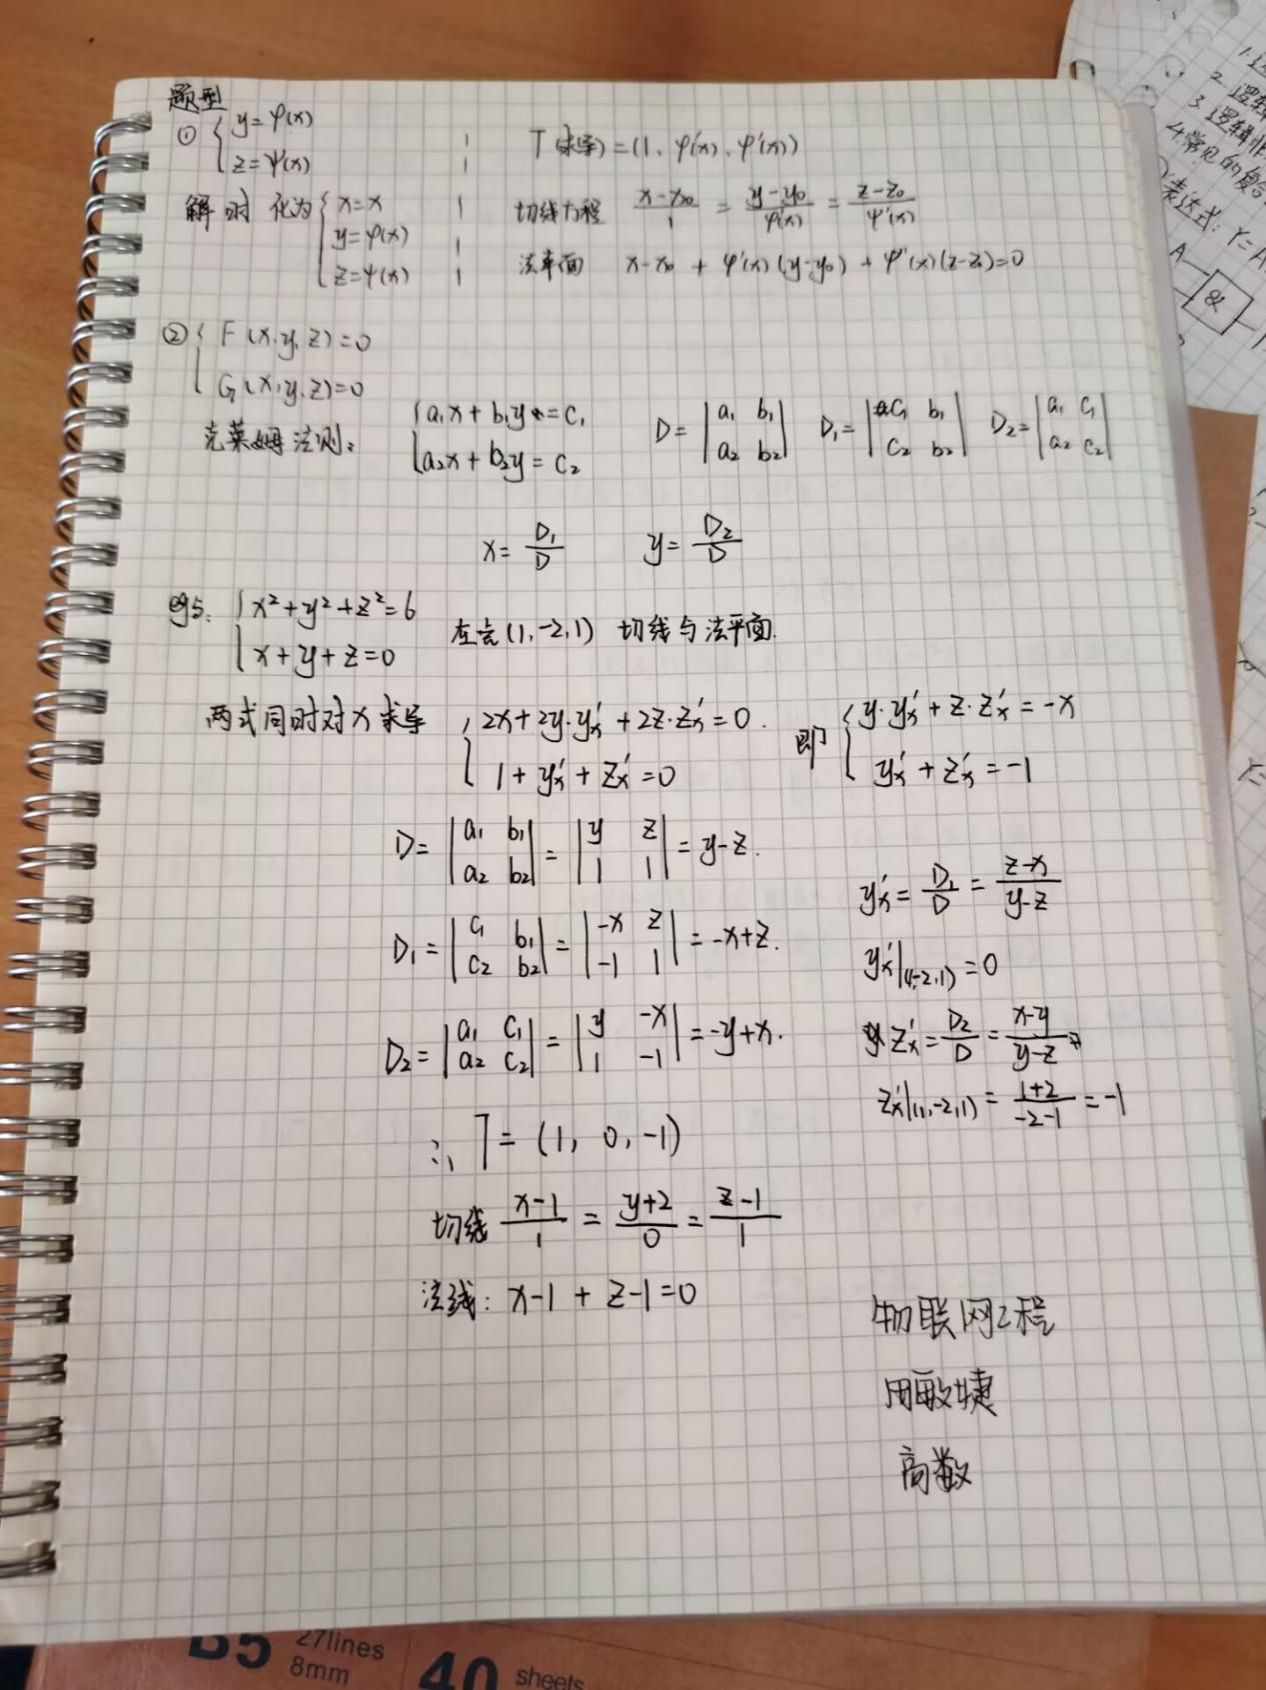 题型
① { y=φ(x)
z=ψ(x)
T(求导)=(1、φ'(x)、ψ'(x))
解时 化为 { x=x
y=φ(x)
z=ψ(x)
切线方程 (x-x₀)/1 = (y-y₀)/φ'(x) = (z-z₀)/ψ'(x)
法平面 x-x₀ + φ'(x)(y-y₀) + ψ'(x)(z-z₀)=0
② { F(x,y,z)=0
G(x,y,z)=0
克莱姆法则: { a₁x+b₁y=c₁
a₂x+b₂y=c₂
D= |a₁ b₁|
|a₂ b₂|
D₁= |c₁ b₁|
|c₂ b₂|
D₂= |a₁ c₁|
|a₂ c₂|
x= D₁/D y= D₂/D
eg5. { x²+y²+z²=6
x+y+z=0
在点(1,-2,1) 切线与法平面.
两式同时对x求导 { 2x+2y·y'ₓ+2z·z'ₓ=0.
1+y'ₓ+z'ₓ=0
即 { y·y'ₓ+z·z'ₓ=-x
y'ₓ+z'ₓ=-1
D= |a₁ b₁| = |y z| = y-z.
|a₂ b₂| |1 1|
D₁= |c₁ b₁| = |-x z| = -x+z.
|c₂ b₂| |-1 1|
D₂= |a₁ c₁| = |y -x| = -y+x.
|a₂ c₂| |1 -1|
y'ₓ= D₁/D = (z-x)/(y-z)
y'ₓ|(1,-2,1)=0
z'ₓ= D₂/D = (x-y)/(y-z)
z'ₓ|(1,-2,1) = (1+2)/(-2-1) =-1
∴ T=(1, 0, -1)
切线 (x-1)/1 = (y+2)/0 = (z-1)/1
法线: x-1 + z-1=0
物联网工程
周敏捷
高数
B5 27lines
8mm
40 sheets
2.逻辑
3.逻辑非
4.常见的复合
表达式:Y=A
A
&
Y=